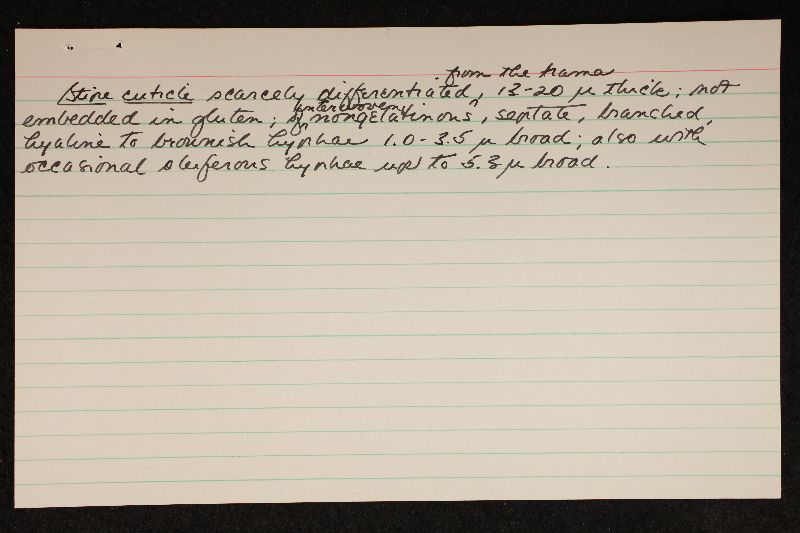 from the trama
Stipe cuticle scarcely differentiated, 13-20 µ thick; not
interwoven,
embedded in gluten; of nongelatinous, septate, branched,
hyaline to brownish hyphae 1.0-3.5 µ broad; also with
occasional oleiferous hyphae up to 5.3 µ broad.